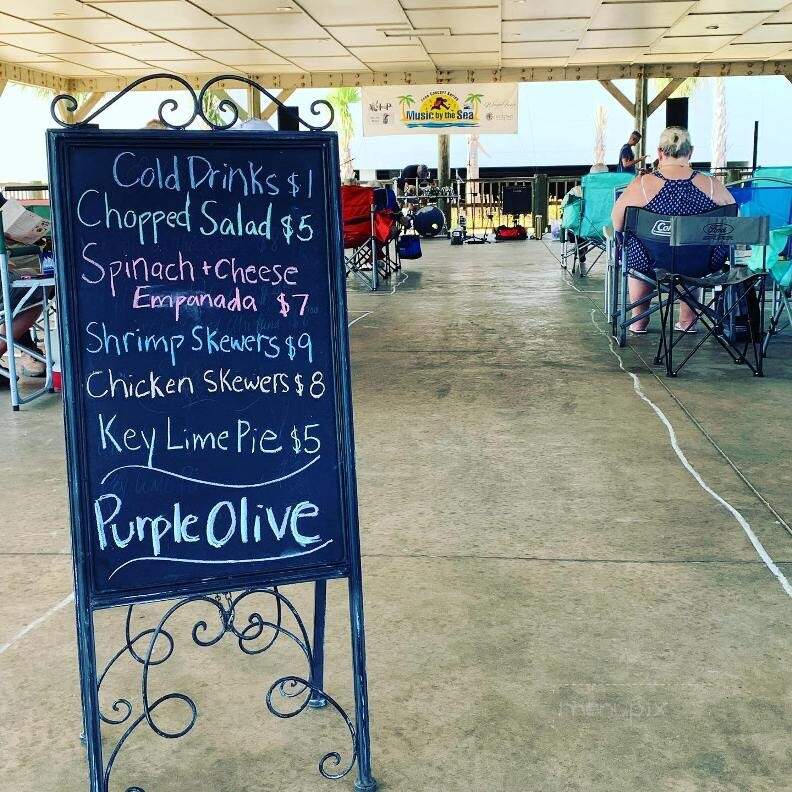 Cold Drinks $1
Chopped Salad $5
Spinach + Cheese
Empanada $7
Shrimp Skewers $9
Chicken Skewers $8
Key Lime Pie $5
Purple Olive
Music by the Sea
Ford
menupix